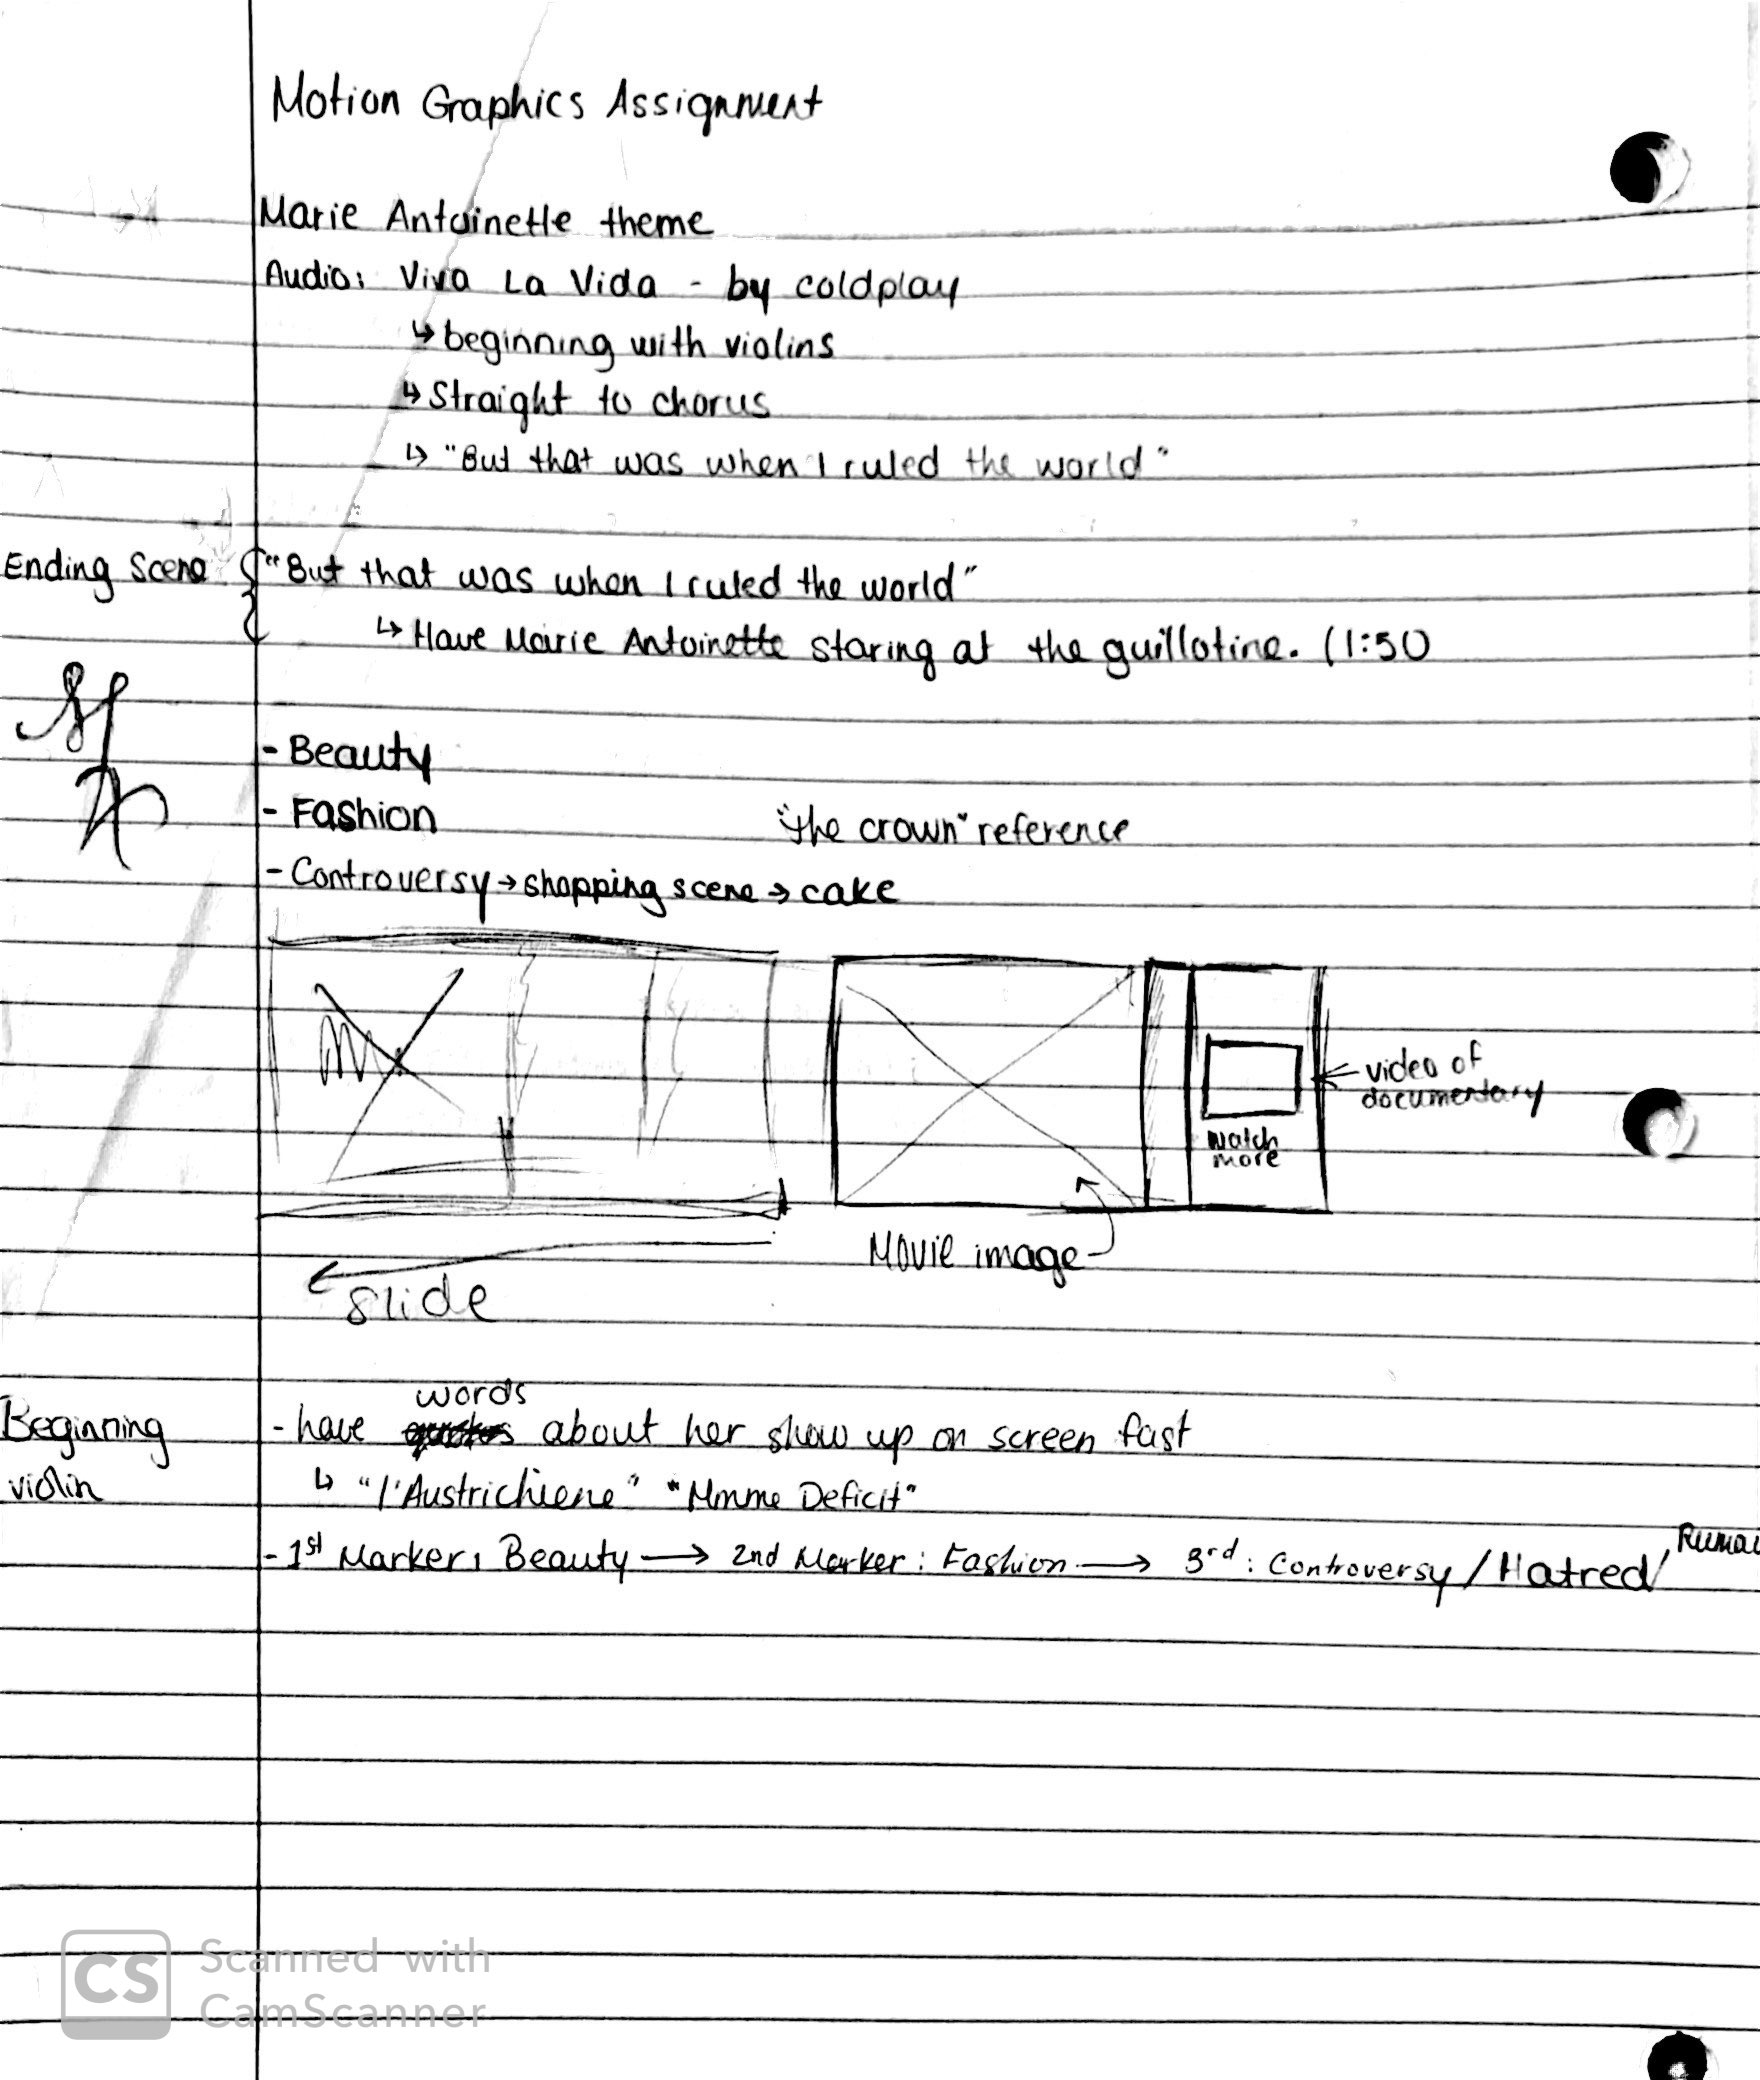 Motion Graphics Assignment
Marie Antoinette theme
Audio: Viva La Vida - by coldplay
↳ beginning with violins
↳ Straight to chorus
↳ "But that was when I ruled the world"
Ending Scene { "But that was when I ruled the world"
↳ Have Marie Antoinette staring at the guillotine. (1:50
- Beauty
- Fashion
"the crown" reference
- Controversy → shopping scene → cake
video of
documentary
watch
more
Movie image
slide
words
Beginning - have about her show up on screen fast
violin ↳ "l'Austrichiene" "Mmme Deficit"
- 1st Marker: Beauty → 2nd Marker: Fashion → 3rd: Controversy / Hatred /
CS Scanned with
CamScanner